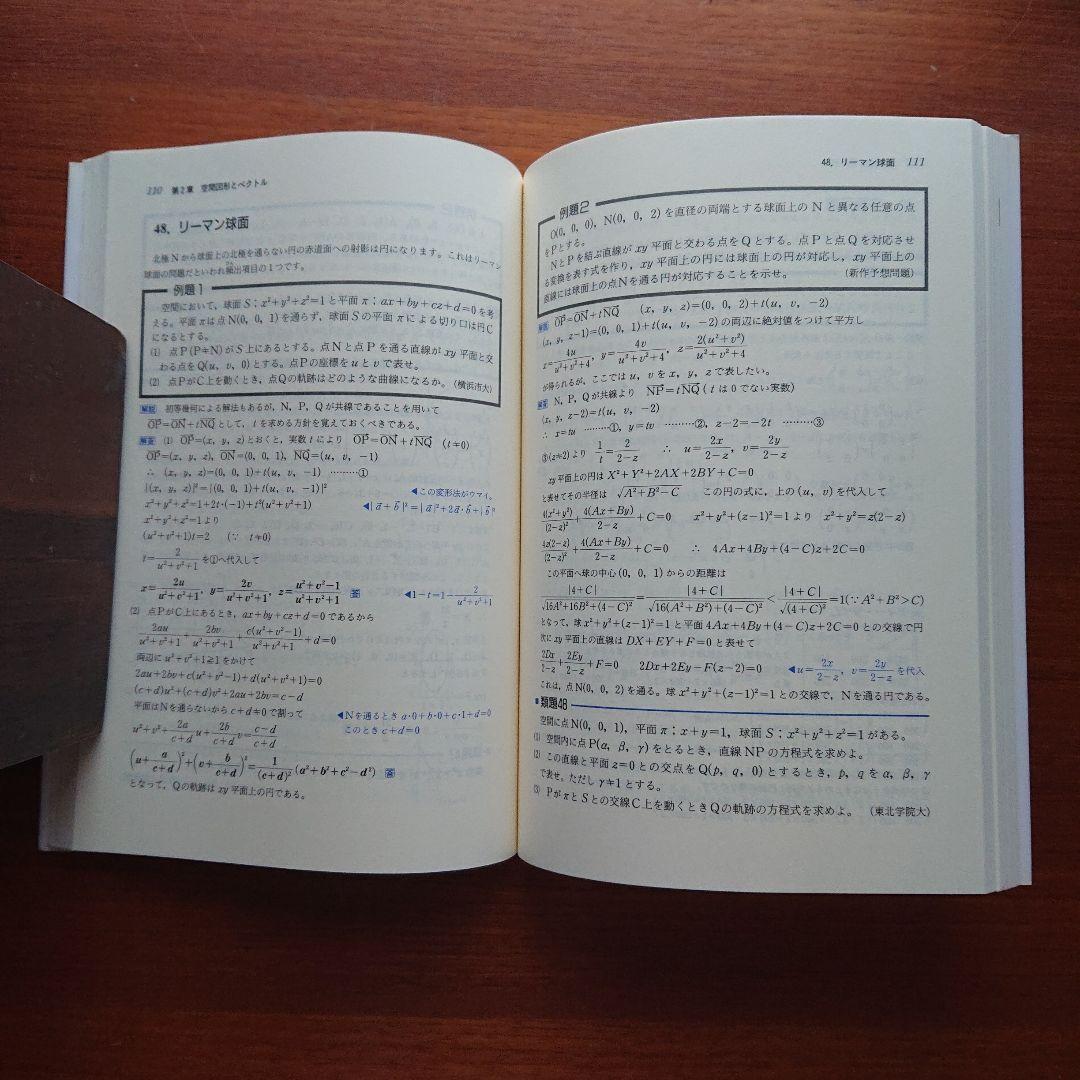 110 第2章 空間図形とベクトル
48. リーマン球面
北極Nから球面上の北極を通らない円の赤道面への射影は円になります。これはリーマン
球面の問題だといわれ頻出項目の1つです。
例題1
空間において，球面S；x²+y²+z²=1と平面π；ax+by+cz+d=0を考
える。平面πは点N(0, 0, 1)を通らず，球面Sの平面πによる切り口は円C
になるとする。
(1) 点P(P≠N)がS上にあるとする。点Nと点Pを通る直線がxy平面と交
わる点をQ(u, v, 0)とする。点Pの座標をuとvで表せ。
(2) 点PがC上を動くとき，点Qの軌跡はどのような曲線になるか。(横浜市大)
解説 初等幾何による解法もあるが，N，P，Qが共線であることを用いて
OP=ON+tNQとして，tを求める方針を覚えておくべきである。
解答 (1) OP=(x, y, z)とおくと，実数tにより OP=ON+tNQ (t≠0)
OP=(x, y, z), ON=(0, 0, 1), NQ=(u, v, −1)
∴ (x, y, z)=(0, 0, 1)+t(u, v, −1) ………①
|(x, y, z)|²=|(0, 0, 1)+t(u, v, −1)|² ◀この変形法がウマイ。
x²+y²+z²=1+2t·(−1)+t²(u²+v²+1) ◀|a+b|²=|a|²+2a·b+|b|²
x²+y²+z²=1より
(u²+v²+1)t=2 (∵ t≠0)
t=2/(u²+v²+1) を①へ代入して
x=2u/(u²+v²+1), y=2v/(u²+v²+1), z=(u²+v²−1)/(u²+v²+1) 答 ◀1−t=1−2/(u²+v²+1)
(2) 点PがC上にあるとき，ax+by+cz+d=0であるから
2au/(u²+v²+1)+2bv/(u²+v²+1)+c(u²+v²−1)/(u²+v²+1)+d=0
両辺にu²+v²+1≧1をかけて
2au+2bv+c(u²+v²−1)+d(u²+v²+1)=0
(c+d)u²+(c+d)v²+2au+2bv=c−d
平面はNを通らないからc+d≠0で割って ◀Nを通るときa·0+b·0+c·1+d=0
u²+v²+2a/(c+d)u+2b/(c+d)v=(c−d)/(c+d) このときc+d=0
(u+a/(c+d))²+(v+b/(c+d))²=1/(c+d)²(a²+b²+c²−d²) 答
となって，Qの軌跡はxy平面上の円である。
48. リーマン球面 111
例題2
O(0, 0, 0), N(0, 0, 2)を直径の両端とする球面上のNと異なる任意の点
をPとする。
NとPを結ぶ直線がxy平面と交わる点をQとする。点Pと点Qを対応させ
る変換を表す式を作り，xy平面上の円には球面上の円が対応し，xy平面上の
直線には球面上の点Nを通る円が対応することを示せ。 (新作予想問題)
解説 OP=ON+tNQ (x, y, z)=(0, 0, 2)+t(u, v, −2)
(x, y, z−1)=(0, 0, 1)+t(u, v, −2)の両辺に絶対値をつけて平方し
x=4u/(u²+v²+4), y=4v/(u²+v²+4), z=2(u²+v²)/(u²+v²+4)
が得られるが，ここではu, vをx, y, zで表したい。
解答 N, P, Qが共線より NP=tNQ (tは0でない実数)
(x, y, z−2)=t(u, v, −2)
∴ x=tu ………①, y=tv ………②, z−2=−2t ………③
③(z≠2)より 1/t=2/(2−z) ∴ u=2x/(2−z), v=2y/(2−z)
xy平面上の円はX²+Y²+2AX+2BY+C=0
と表せてその半径は √(A²+B²−C) この円の式に，上の(u, v)を代入して
4(x²+y²)/(2−z)²+4(Ax+By)/(2−z)+C=0 x²+y²+(z−1)²=1より x²+y²=z(2−z)
4z(2−z)/(2−z)²+4(Ax+By)/(2−z)+C=0 ∴ 4Ax+4By+(4−C)z+2C=0
この平面へ球の中心(0, 0, 1)からの距離は
|4+C|/√(16A²+16B²+(4−C)²)=|4+C|/√(16(A²+B²)+(4−C)²)<|4+C|/√((4+C)²)=1(∵A²+B²>C)
となって，球x²+y²+(z−1)²=1と平面4Ax+4By+(4−C)z+2C=0との交線で円
次にxy平面上の直線はDX+EY+F=0と表せて
2Dx/(2−z)+2Ey/(2−z)+F=0 2Dx+2Ey−F(z−2)=0 ◀u=2x/(2−z), v=2y/(2−z)を代入
これは，点N(0, 0, 2)を通る。球x²+y²+(z−1)²=1との交線で，Nを通る円である。
類題48
空間に点N(0, 0, 1)，平面π；x+y=1，球面S；x²+y²+z²=1がある。
(1) 空間内に点P(α, β, γ)をとるとき，直線NPの方程式を求めよ。
(2) この直線と平面z=0との交点をQ(p, q, 0)とするとき，p, qをα, β, γ
で表せ。ただしγ≠1とする。
(3) PがπとSとの交線C上を動くときQの軌跡の方程式を求めよ。 (東北学院大)